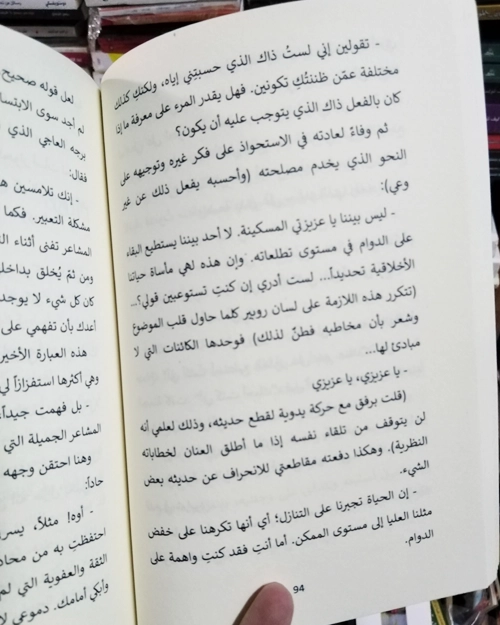 - تقولين إني لستُ ذاك الذي حسبتِني إياه، ولكنك كذلك
مختلفة عمّن ظننتُكِ تكونين. فهل يقدر المرء على معرفة ما إذا
كان بالفعل ذاك الذي يتوجب عليه أن يكون؟
ثم وفاءً لعادته في الاستحواذ على فكر غيره وتوجيهه على
النحو الذي يخدم مصلحته (وأحسبه يفعل ذلك عن غير
وعي):
- ليس بيننا يا عزيزتي المسكينة. لا أحد بيننا يستطيع البقاء
على الدوام في مستوى تطلعاته. وإن هذه لهي مأساة حياتنا
الأخلاقية تحديداً... لست أدري إن كنتِ تستوعبين قولي؟...
(تتكرر هذه اللازمة على لسان روبير كلما حاول قلب الموضوع
وشعر بأن مخاطبه فطنّ لذلك) فوحدها الكائنات التي لا
مبادئ لها...
- يا عزيزي، يا عزيزي
(قلت برفق مع حركة يدوية لقطع حديثه، وذلك لعلمي أنه
لن يتوقف من تلقاء نفسه إذا ما أطلق العنان لخطاباته
النظرية). وهكذا دفعته مقاطعتي للانحراف عن حديثه بعض
الشيء.
- إن الحياة تجبرنا على التنازل؛ أي أنها تكرهنا على خفض
مثلنا العليا إلى مستوى الممكن. أما أنتِ فقد كنتِ واهمة على
الدوام.
94
لعل قوله صحيح
لم أجد سوى الابتسا
برجه العاجي الذي
فقال:
- إنك تلامسين ه
مشكلة التعبير. فكما
المشاعر تفنى أثناء ال
ومن ثمّ يُخلق بداخل
كان كل شيء لا يوجد
أعدك بأن تفهمي على
هذه العبارة الأخير
وهي أكثرها استفزازاً لي
- بل فهمت جيداً،
المشاعر الجميلة التي
وهنا احتقن وجهه
حاداً:
- أوه! مثلاً، يسر
احتفظتِ به من محاد
الثقة والعفوية التي لم
وأبكي أمامك. دموعي لا